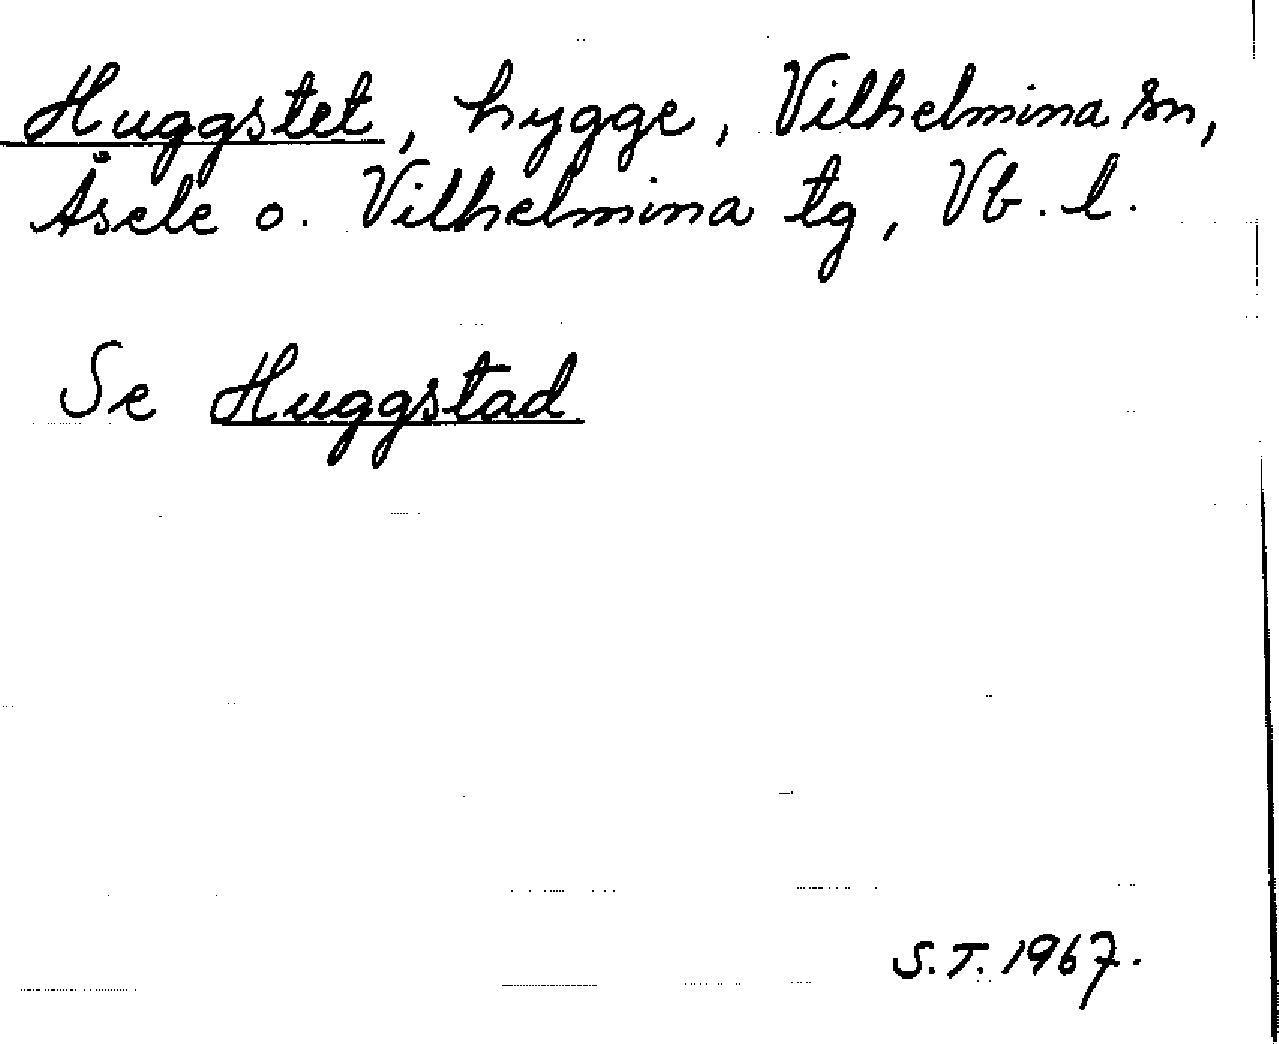 Huggstet, hygge, Vilhelmina sn,
Åsele o. Vilhelmina tg, Vb. l.
Se Huggstad
S.T. 1967.